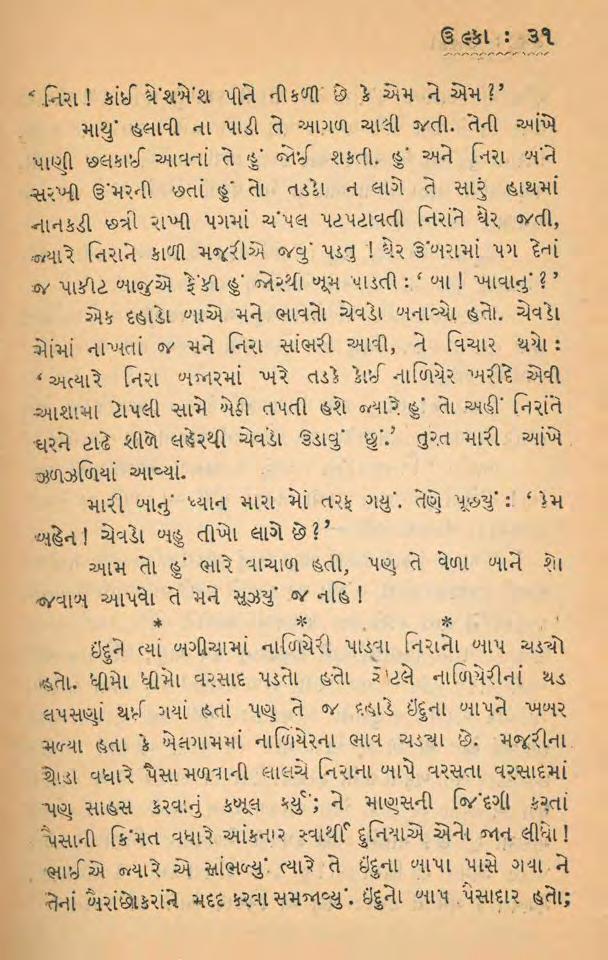 ઉલ્કા : ૩૧
‘ નિરા ! કાંઈ ઘેંશબેંશ પીને નીકળી છે કે એમ ને એમ ?’
માથું હલાવી ના પાડી તે આગળ ચાલી જતી. તેની આંખે
પાણી છલકાઈ આવતાં તે હું જોઈ શકતી. હું અને નિરા બંને
સરખી ઉંમરની છતાં હું તો તડકો ન લાગે તે સારું હાથમાં
નાનકડી છત્રી રાખી પગમાં ચંપલ પટપટાવતી નિરાંતે ઘેર જતી,
જ્યારે નિરાને કાળી મજૂરીએ જવું પડતુ ! ઘેર ઉંબરામાં પગ દેતાં
જ પાકીટ બાજુએ ફેંકી હું જોરથી બૂમ પાડતી : ‘ બા ! ખાવાનું ? ’
એક દહાડો બાએ મને ભાવતો ચેવડો બનાવ્યો હતો. ચેવડો
મોંમાં નાખતાં જ મને નિરા સાંભરી આવી, ને વિચાર થયો :
‘ અત્યારે નિરા બજારમાં ખરે તડકે કોઈ નાળિયેર ખરીદે એવી
આશામા ટોપલી સામે બેઠી તપતી હશે જ્યારે હું તો અહીં નિરાંતે
ઘરને ટાઢે શીળે લહેરથી ચેવડો ઉડાવું છું.’ તુરત મારી આંખે
ઝળઝળિયાં આવ્યાં.
મારી બાનું ધ્યાન મારા મોં તરફ ગયું. તેણે પૂછયું : ‘ કેમ
બહેન ! ચેવડો બહુ તીખો લાગે છે ?’
આમ તો હું ભારે વાચાળ હતી, પણ તે વેળા બાને શો
જવાબ આપવો તે મને સૂઝયું જ નહિ !
* * *
ઇંદુને ત્યાં બગીચામાં નાળિયેરી પાડવા નિરાનો બાપ ચડ્યો
હતો. ધીમો ધીમો વરસાદ પડતો હતો એટલે નાળિયેરીનાં થડ
લપસણાં થઈ ગયાં હતાં પણ તે જ દહાડે ઇંદુના બાપને ખબર
મળ્યા હતા કે બેલગામમાં નાળિયેરના ભાવ ચડયા છે. મજૂરીના
થોડા વધારે પૈસા મળવાની લાલચે નિરાના બાપે વરસતા વરસાદમાં
પણ સાહસ કરવાનું કબૂલ કર્યું; ને માણસની જિંદગી કરતાં
પૈસાની કિંમત વધારે આંકનાર સ્વાર્થી દુનિયાએ એનો જાન લીધો !
ભાઈએ જ્યારે એ સાંભળ્યું ત્યારે તે ઇંદુના બાપા પાસે ગયા ને
તેનાં બૈરાંછોકરાંને મદદ કરવા સમજાવ્યું. ઇંદુનો બાપ પૈસાદાર હતો;